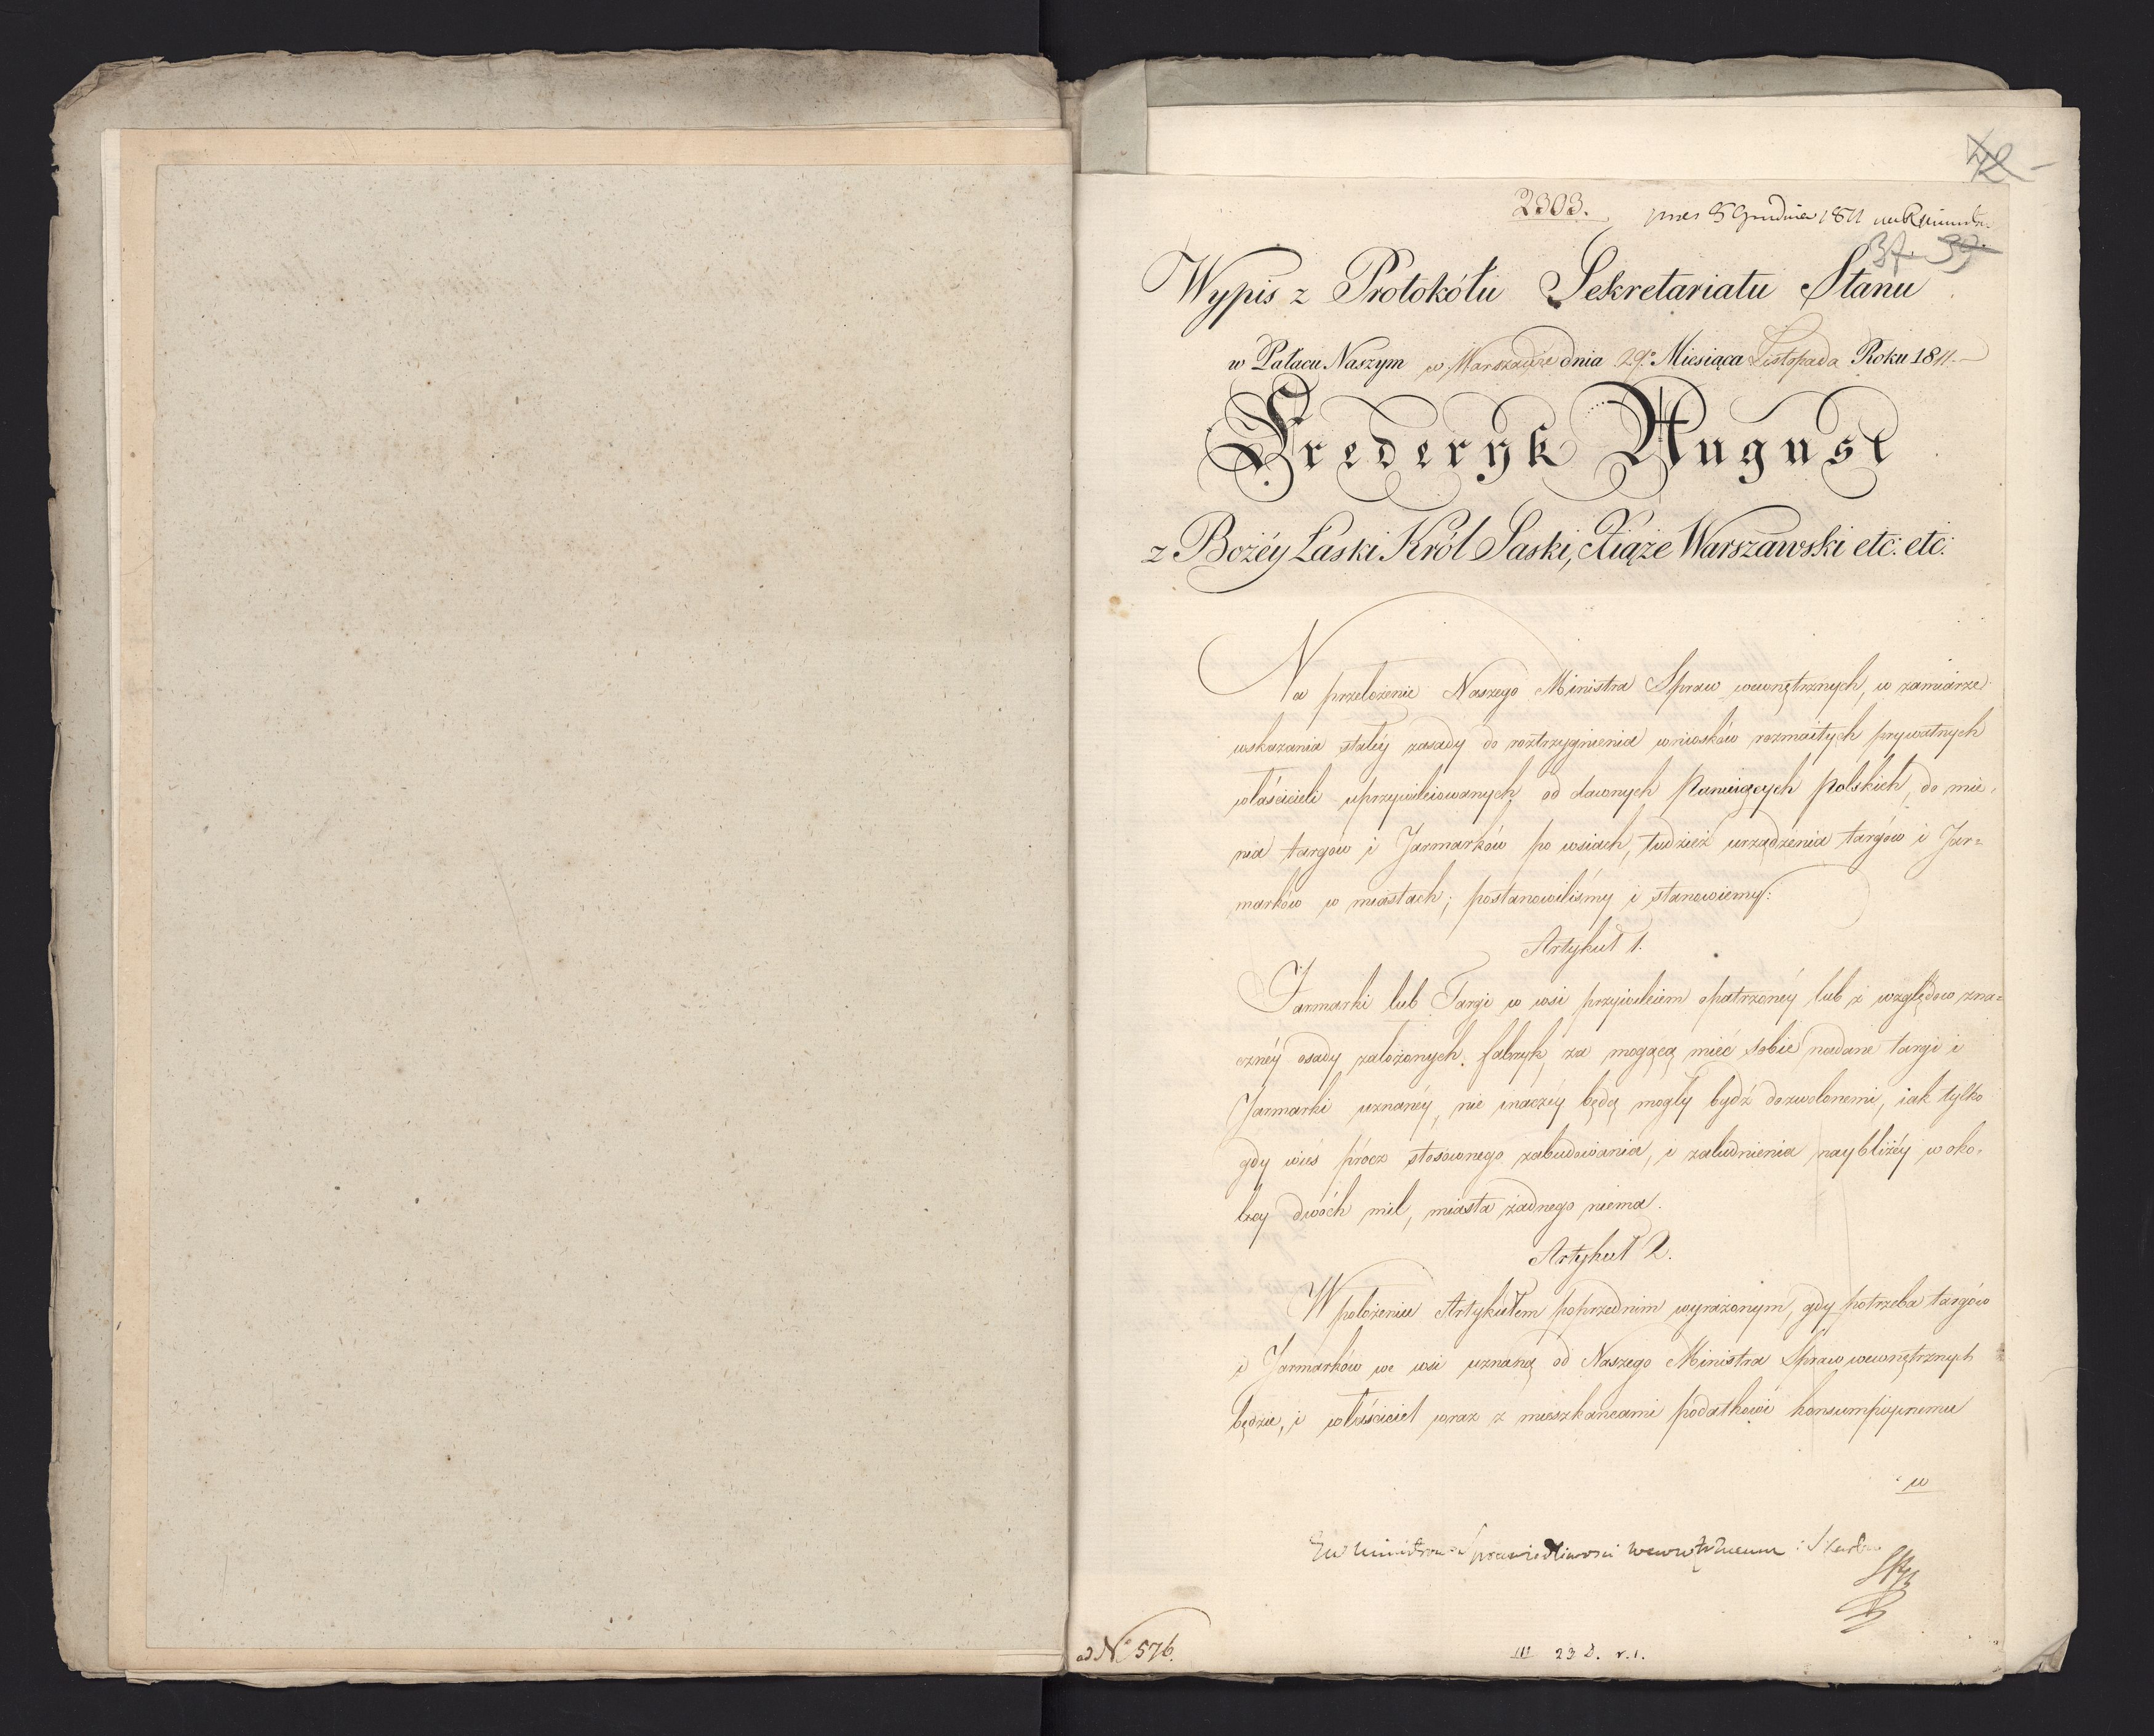 42
2303. pres 5 Grudnia 1811
37. 39.
Wypis z Protokółu Sekretariatu Stanu
w Pałacu Naszym w Warszawie dnia 29º Miesiąca Listopada Roku 1811.
Frederyk August
z Bożéy Łaski Król Saski, Xiąże Warszawski etc: etc:
Na przełożenie Naszego Ministra Spraw wewnętrznych, w zamiarze
wskazania stałéy zasady do roztrzygnienia wniosków rozmaitych prywatnych
właścicieli uprzywileiowanych od dawnych Panuiących polskich, do mie-
nia targów i Jarmarków po wsiach, tudzież urządzenia targów i Jar=
marków w miastach; postanowiliśmy i stanowiemy:
Artykuł 1.
Jarmarki lub Targi w wsi przywileiem opatrzonéy lub z względów zna=
cznéy osady założonych fabryk, za mogącą mieć sobie nadane targi i
Jarmarki uznanéy, nie inaczéy będą mogły bydź dozwolonemi, iak tylko
gdy wieś prócz stosownego zabudowania, i zaludnienia naybliżéy w oko-
licy dwóch mil, miasta żadnego niema.
Artykuł 2.
W położeniu Artykułem poprzednim wyrażonym, gdy potrzeba targów
i Jarmarków we wsi uznaną od Naszego Ministra Spraw wewnętrznych
będzie, i właściciel wraz z mieszkańcami podatkowi konsumpcyjnemu
w
Ministrom Sprawiedliwości wewnętrznemu i Skarbu
ad Nº 576.
III 23 D. r. 1.